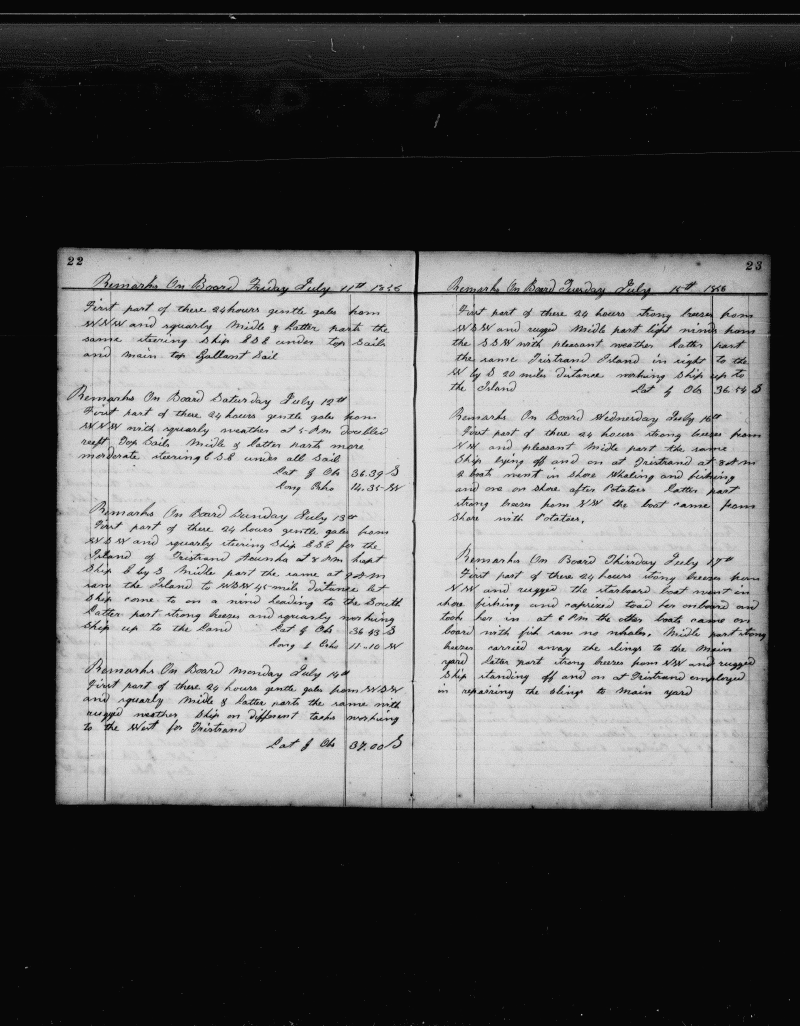 22
Remarks On Board Friday July 11th 1856
First part of these 24 hours gentle gales from
WNW and squarly Midle & Latter parts the
same steering Ship ESE under top Sails
and main top Gallant Sail
Remarks On Board Saturday July 12th
First part of these 24 hours gentle gales from
WNW with squarly weather at 5 P.M doubled
reeft Top Sails Midle & Latter parts more
morderate steering ESE under all Sail
Lat by Obs 36.39 S
Long Crho 14.35 W
Remarks On Board Sunday July 13th
First part of these 24 hours gentle gales from
WSW and squarly stering Ship ESE for the
Island of Tristrand at 8 P.M kept
Ship E by S Midle part the same at 9 A.M
saw the Island to WSW 45 mile distance let
Ship come to on a wind heading to the South
Latter part strong breeze and squarly working
Ship up to the Land Lat by Obs 36 43 S
Long by Crho 11-10 W
Remarks On Board Monday July 14th
First part of these 24 hours gentle gales from WSW
and squarly Midle & latter parts the same with
rugged weather Ship on different tacks working
to the West for Tristrand
Lat by Obs 37.00 S
23
Remarks On Board Tuesday July 15th 1856
First part of these 24 hours strong breeses from
WSW and rugged Midle part light winds from
the SSW with pleasant weather Latter part
the same Tristrand Island in sight to the
W by S 20 miles distance working Ship up to
the Island Lat by Obs 36.54 S
Remarks On Board Wednesday July 16th
First part of these 24 hours strong breeses from
NW and pleasant Midle part the same
Ship lying off and on at Tristrand at 8 A M
2 boats went in shore Whaling and fishing
and one on shore after Potatoes Latter part
strong breeses from NW the boat came from
Shore with Potatoes.
Remarks On Board Thirsday July 17th
First part of these 24 hours strong breeses from
NW and rugged the starboard boat went in
shore fishing and capsized toad her onboard and
took her in at 6 P.M the other boats came on
board with fish saw no whales. Midle part strong
breeses carried away the slings to the Main
yard latter part strong breeses from NW and rugged
Ship standing off and on at Tristrand employed
in repairing the Slings to Main yard